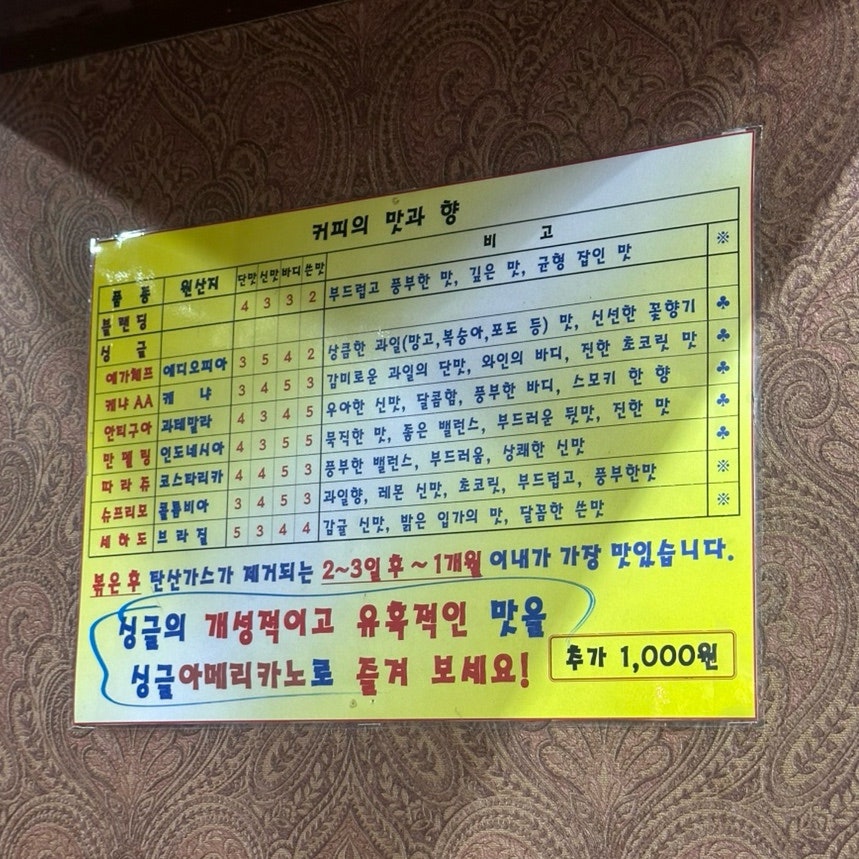 커피의 맛과 향
품 종 원산지 단맛 신맛 바디 쓴맛 비 고
블랜딩 4 3 3 2 부드럽고 풍부한 맛, 깊은 맛, 균형 잡인 맛 ※
싱 글
예가체프 에디오피아 3 5 4 2 상큼한 과일(망고,복숭아,포도 등) 맛, 신선한 꽃향기 ♣
케냐 AA 케 냐 3 4 5 3 감미로운 과일의 단맛, 와인의 바디, 진한 초코릿 맛 ♣
안티구아 과테말라 4 3 4 5 우아한 신맛, 달콤함, 풍부한 바디, 스모키 한 향 ♣
만 델 링 인도네시아 4 3 5 5 묵직한 맛, 좋은 밸런스, 부드러운 뒷맛, 진한 맛 ♣
따 라 쥬 코스타리카 4 4 5 3 풍부한 밸런스, 부드러움, 상쾌한 신맛 ♣
슈프리모 콜롬비아 3 4 5 3 과일향, 레몬 신맛, 초코릿, 부드럽고, 풍부한맛 ※
세 하 도 브 라 질 5 3 4 4 감귤 신맛, 밝은 입가의 맛, 달콤한 쓴맛 ※
볶은 후 탄산가스가 제거되는 2~3일 후 ~ 1개월 이내가 가장 맛있습니다.
싱글의 개성적이고 유혹적인 맛을
싱글아메리카노로 즐겨 보세요!
추가 1,000원